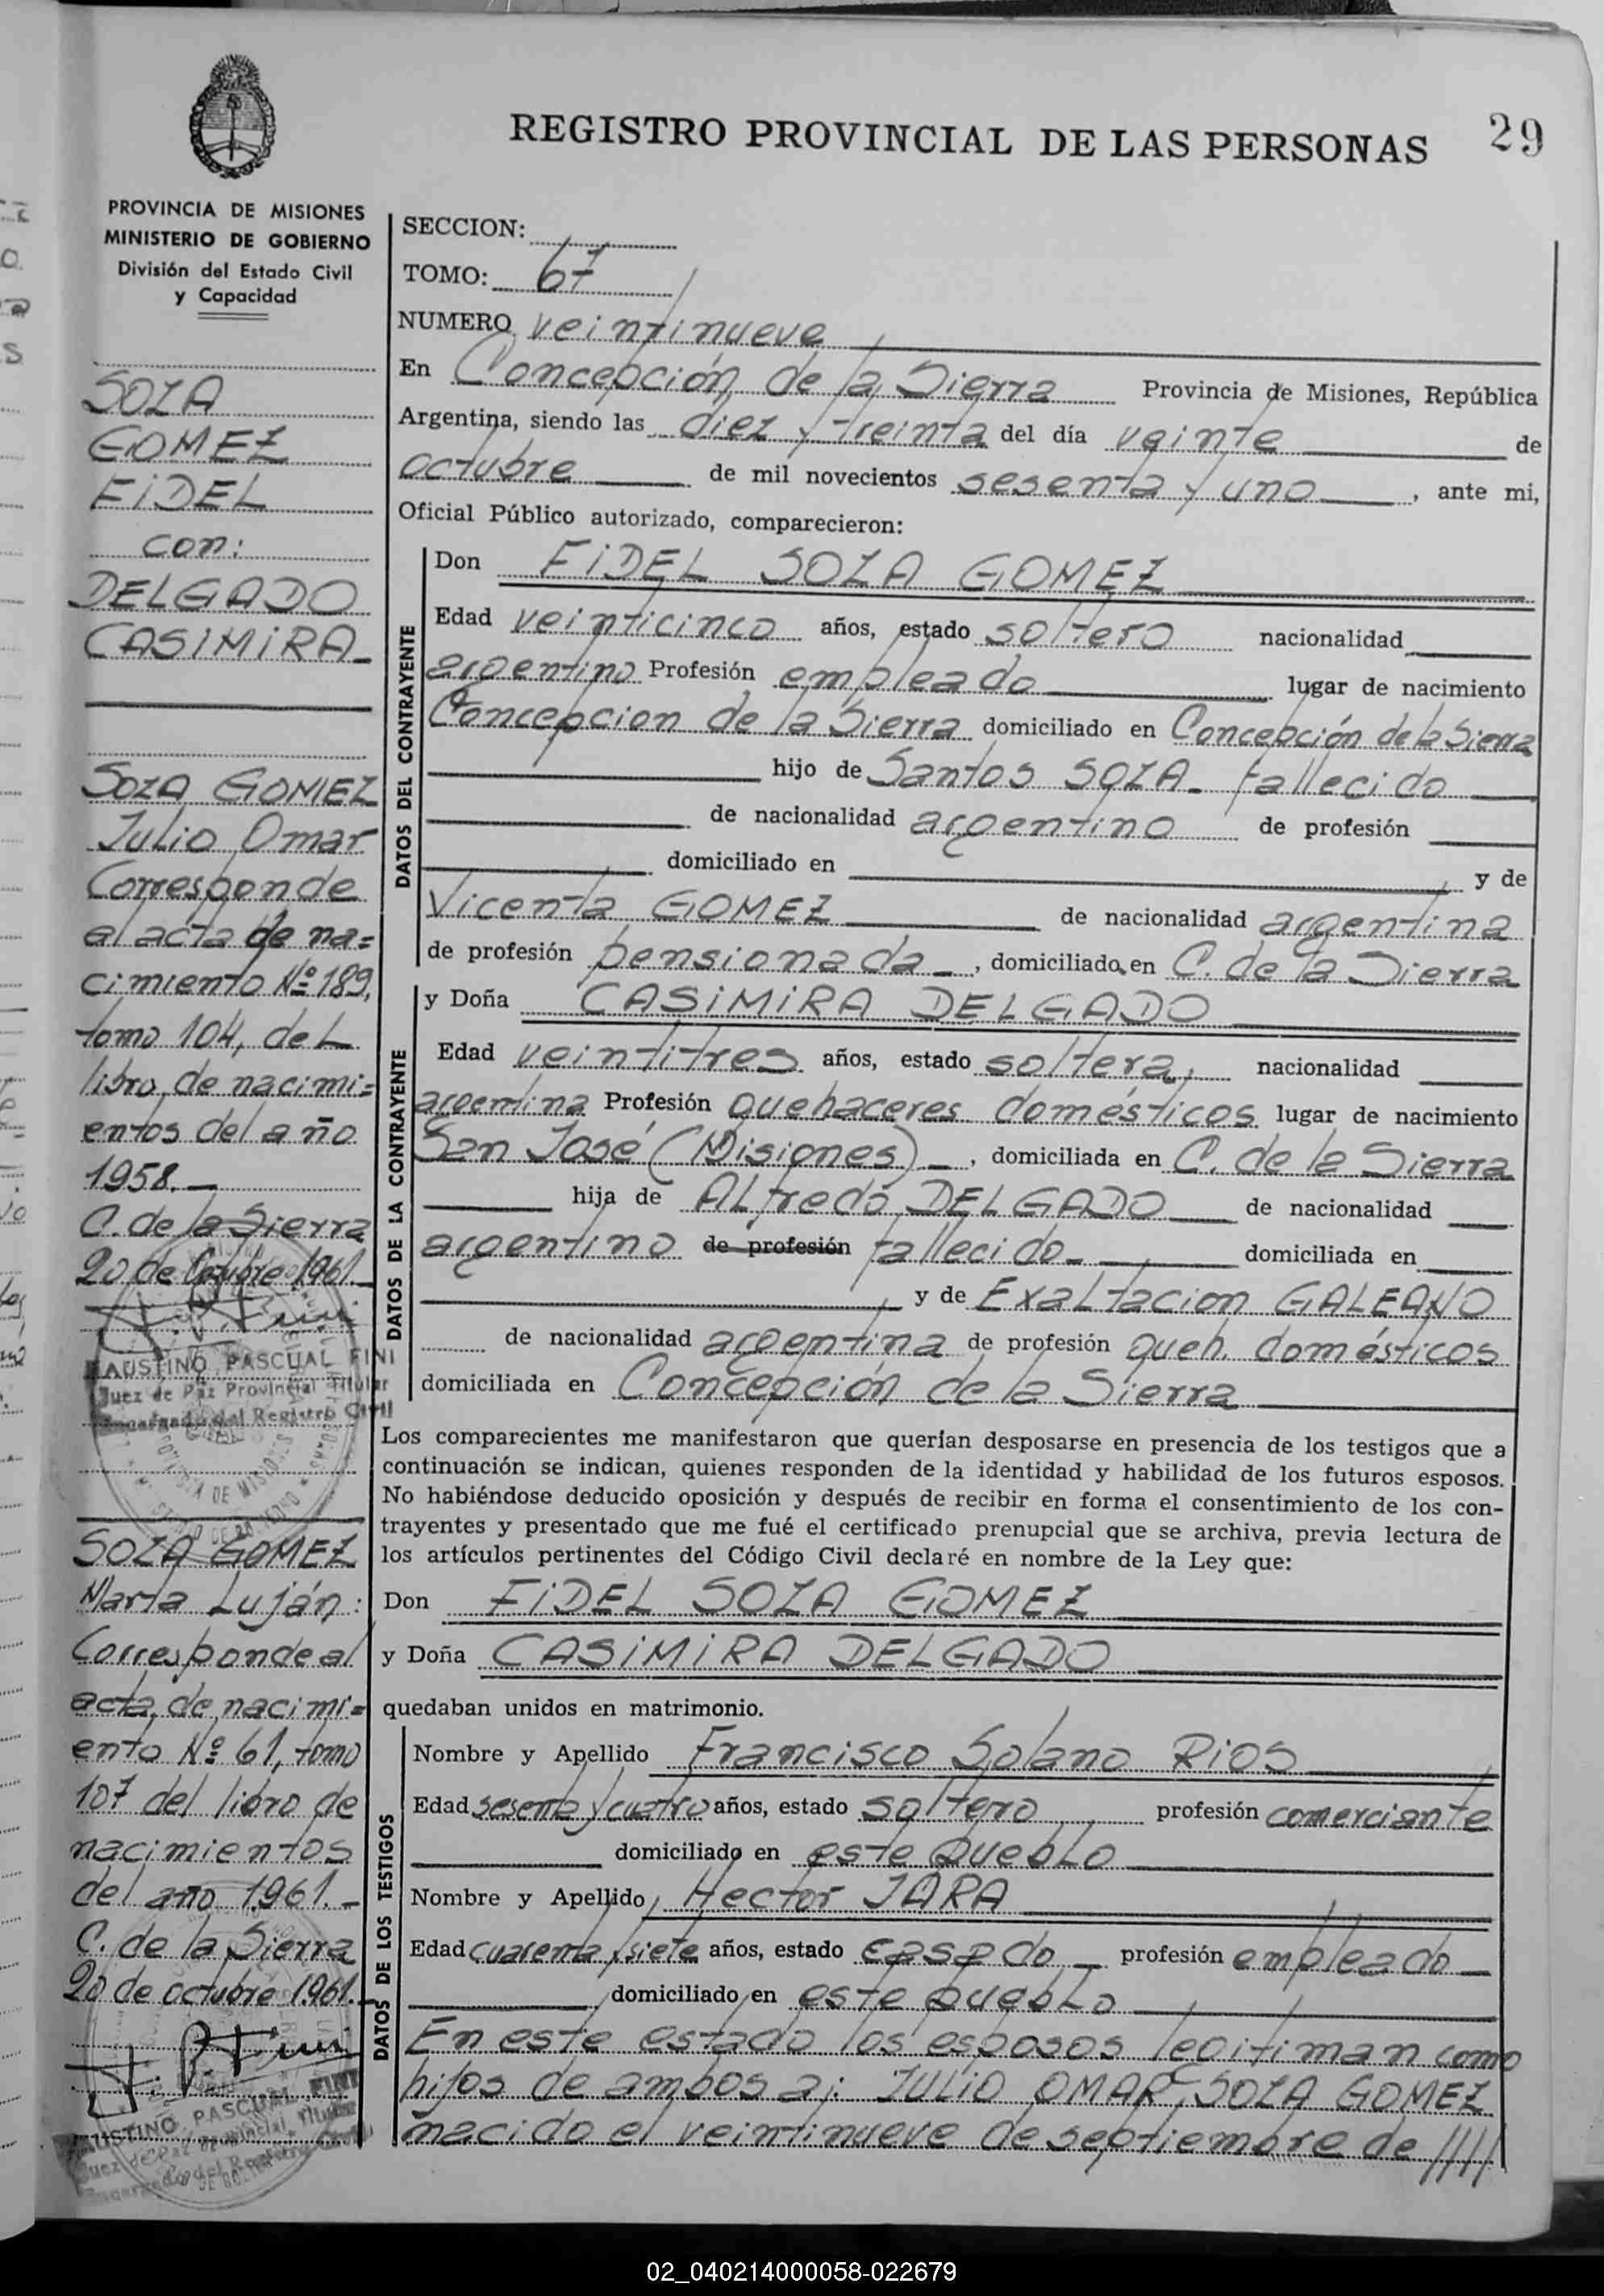 REGISTRO PROVINCIAL DE LAS PERSONAS
29
PROVINCIA DE MISIONES
MINISTERIO DE GOBIERNO
División del Estado Civil
y Capacidad
SOZA
GOMEZ
FIDEL
con:
DELGADO
CASIMIRA
SOZA GOMEZ
Julio Omar
Corresponde
al acta de na=
cimiento Nº 189,
tomo 104, del
libro de nacimi=
entos del año
1958.
C. de la Sierra
20 de Octubre 1961.
FAUSTINO PASCUAL FINI
Juez de Paz Provincial Titular
Encargado del Registro Civil
SOZA GOMEZ
Marta Luján:
Corresponde al
acta de nacimi=
ento Nº 61, tomo
107 del libro de
nacimientos
del año 1961.-
C. de la Sierra
20 de octubre 1961.
FAUSTINO PASCUAL FINI
Juez de Paz Provincial Titular
Encargado del Registro Civil
SECCION:
TOMO: 67
NUMERO veintinueve
En Concepción de la Sierra Provincia de Misiones, República
Argentina, siendo las diez y treinta del día veinte de
octubre de mil novecientos sesenta y uno, ante mi,
Oficial Público autorizado, comparecieron:
DATOS DEL CONTRAYENTE
Don FIDEL SOZA GOMEZ
Edad veinticinco años, estado soltero nacionalidad
argentino Profesión empleado lugar de nacimiento
Concepcion de la Sierra domiciliado en Concepción de la Sierra
hijo de Santos SOZA - fallecido
de nacionalidad argentino de profesión
domiciliado en y de
Vicenta GOMEZ de nacionalidad argentina
de profesión pensionada, domiciliado en C. de la Sierra
DATOS DE LA CONTRAYENTE
y Doña CASIMIRA DELGADO
Edad veintitres años, estado soltera, nacionalidad
argentina Profesión quehaceres domésticos lugar de nacimiento
San José (Misiones), domiciliada en C. de la Sierra
hija de Alfredo DELGADO de nacionalidad
argentino de profesión fallecido domiciliada en
y de Exaltacion GALEANO
de nacionalidad argentina de profesión queh. domésticos
domiciliada en Concepción de la Sierra
Los comparecientes me manifestaron que querían desposarse en presencia de los testigos que a
continuación se indican, quienes responden de la identidad y habilidad de los futuros esposos.
No habiéndose deducido oposición y después de recibir en forma el consentimiento de los con-
trayentes y presentado que me fué el certificado prenupcial que se archiva, previa lectura de
los artículos pertinentes del Código Civil declaré en nombre de la Ley que:
Don FIDEL SOZA GOMEZ
y Doña CASIMIRA DELGADO
quedaban unidos en matrimonio.
DATOS DE LOS TESTIGOS
Nombre y Apellido Francisco Solano RIOS
Edad sesenta y cuatro años, estado soltero profesión comerciante
domiciliado en este pueblo
Nombre y Apellido Hector JARA
Edad cuarenta y siete años, estado casado profesión empleado
domiciliado en este pueblo
En este estado los esposos legitiman como
hijos de ambos a: JULIO OMAR SOZA GOMEZ
nacido el veintinueve de septiembre de /////
02_040214000058-022679